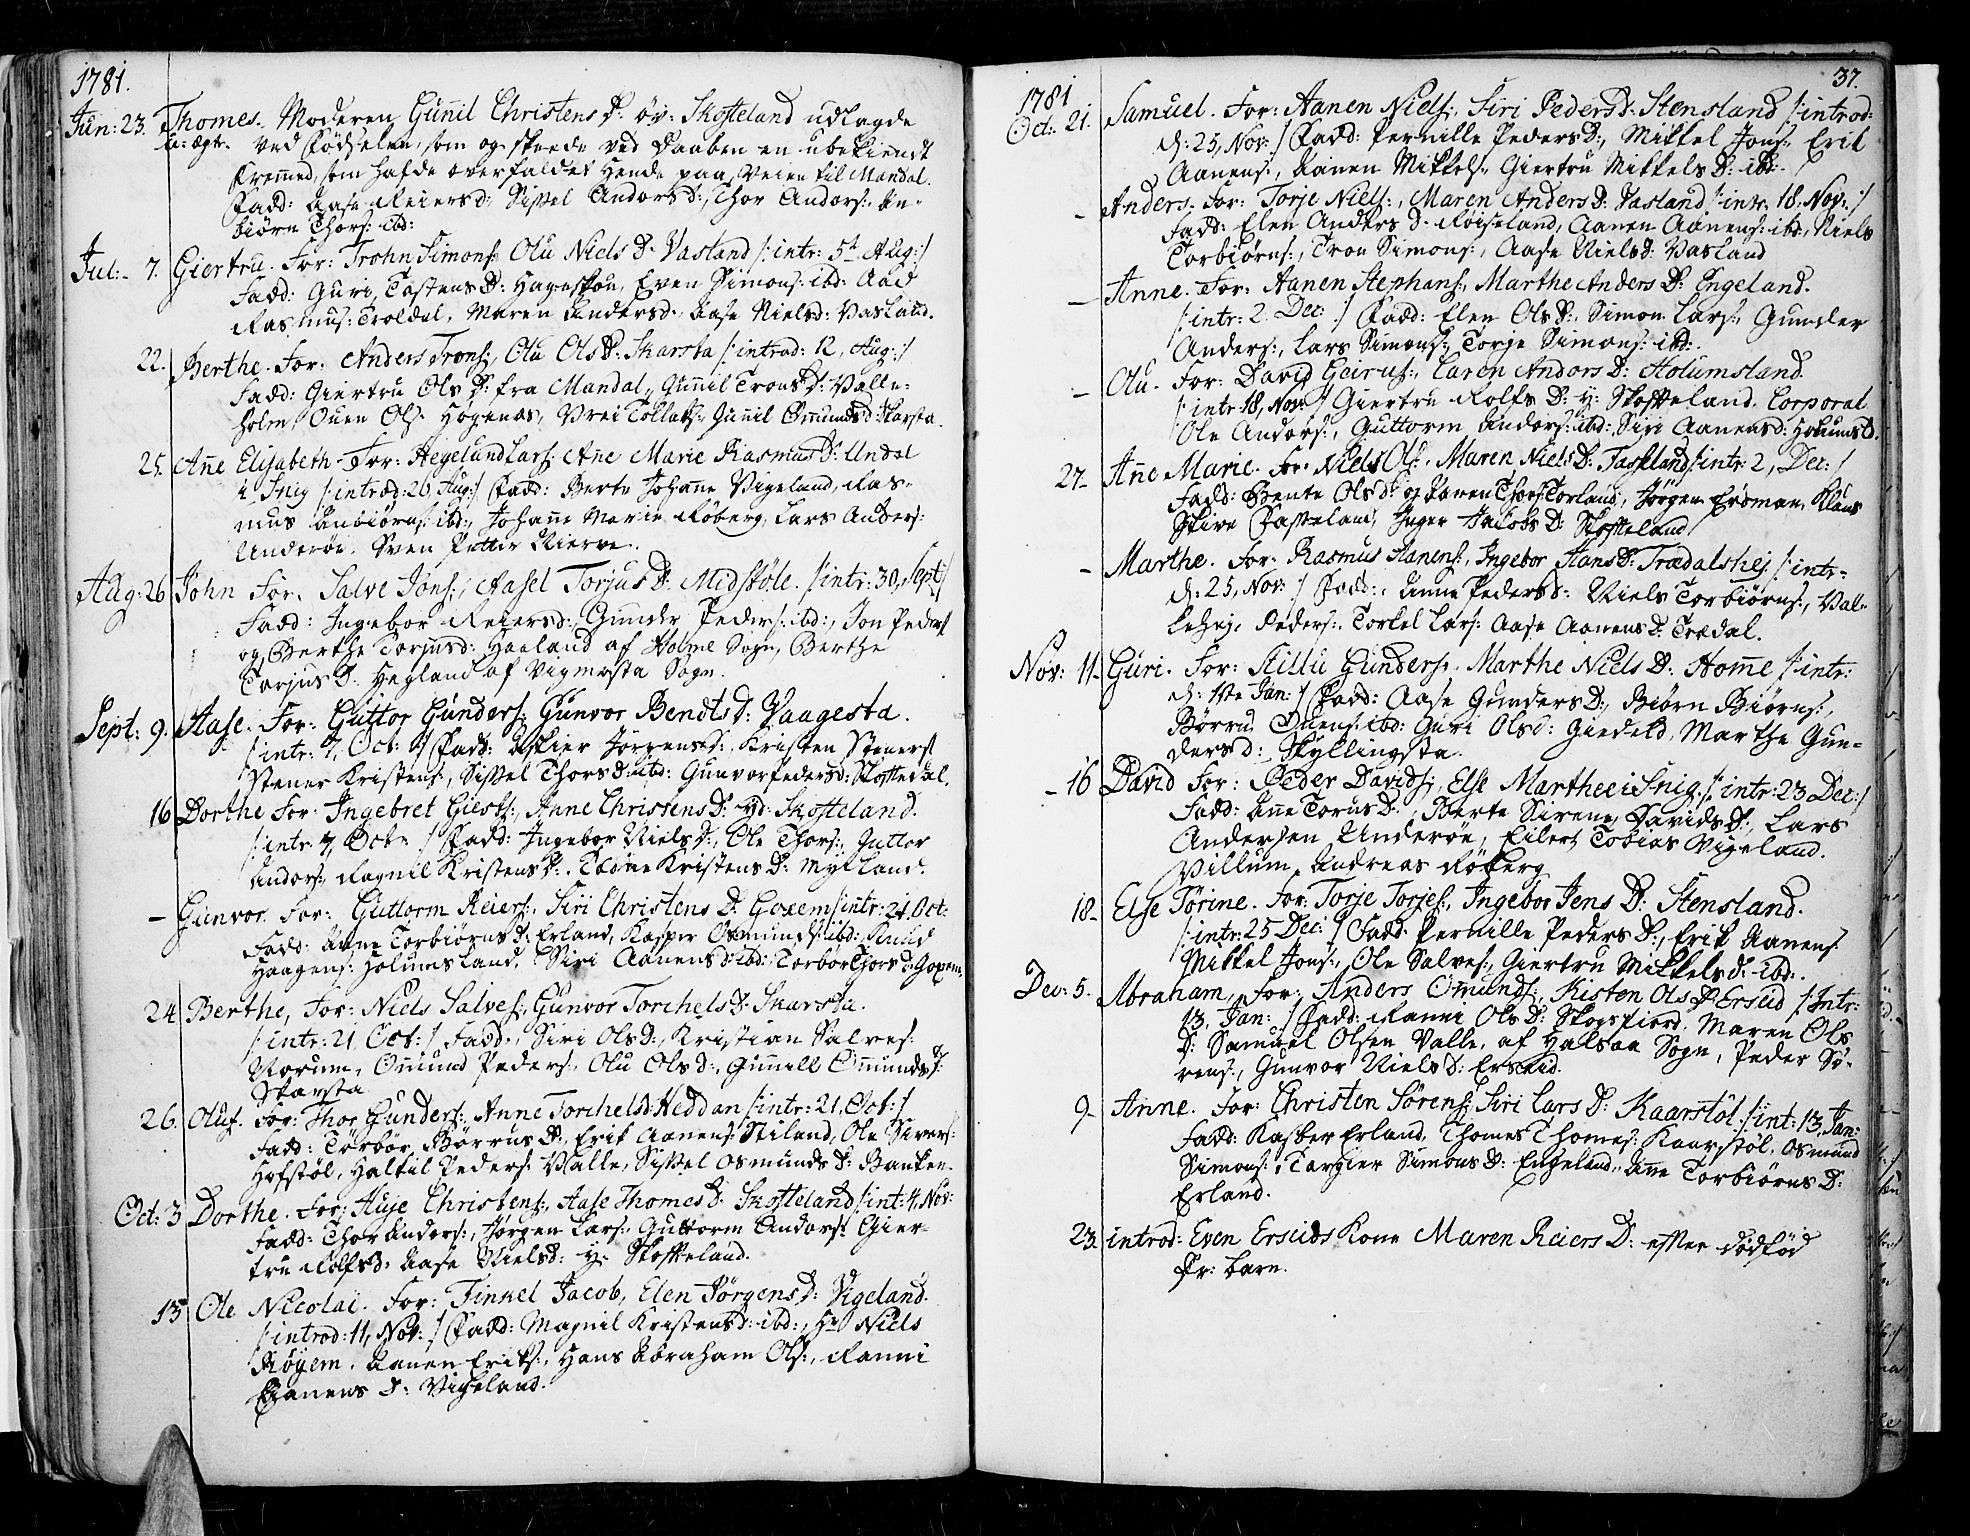 1781.
Jun: 23. Thomes. Moderen Guñil Christens D: öv: Skofteland udlagde
u: ægte. ved Fødselen, som og skeede ved Daaben en ubekiendt
Fremmed, som hafde overfaldet hende paa Veien til Mandal.
Fadd: Aase Reiersd: Sissel Andorsd:, Thor Andors:, An-
biörn Thors: ibd:
Jul:- 7. Giertru. For: Trohn Simons: Olu Niels D: Vasland /: intr: 5t Aug:/
Fadd: Guri Tostens D: Hageskou, Even Simons: ibd: Aad
Rasmus: Troldal, Maren Andersd: Aase Nielsd: Vasland.
22. Berthe. For: Anders Trons:, Olu Ols D: Skarsta /: introd: 12, Aug:/
Fadd: Giertru Ols D: fra Mandal, Guñil Trons D: Valle-
holm, Ouen Ols: Hogenæs, Vrei Tollaks:, Guñil Omundsd: Skarsta.
25. Añe Elisabeth. For: Hegelund Lars: Añe Marie Rasmus D: Undal
i Snig /: introd: 26, Aug:/ Fadd: Berte Johañe Vigeland, Ras-
mus Anbiörns: ibd:, Johañe Marie Röberg, Lars Anders:
Underöe. Sven Petter Nierve.
Aug: 26 John For. Salve Jons:, Aasel Torjus D: Midstöle. /: intr: 30, Sept:/
Fadd: Ingebor Reiersd:, Gunder Peders: ibd:, Jon Peders
og Berthe Torjusd: Haaland af Holme Sogn, Berthe
Torjus D: Hegland af Vigmosta Sogn.
Sept: 9. Aase. For: Guttor Gunders: Gunvor Bendts D: Vaagesta.
/: intr: 7, Oct: / Fadd: Askier Jörgensd:, Kristen Steners:
Stener Kristens:, Sissel Thorsd: ibd: Gunvor Pedersd: Skoftedal.
16 Dorthe For: Ingebret Giests:, Anne Christens D: yd: Skofteland.
/: intr: 7, Oct: / Fadd: Ingebor Niels D:, Ole Thors:, Guttor
Andors:, Ragnil Kristens D:. Todne Kristens D: Mykland.
- Gunvor. For: Guttorm Reiers:, Siri Christens D: Goxem /: intr: 21. Oct:
Fadd: Anne Torbiörns D: Erland, Kasper Osmunds: ibd: Knud
Haagens: Holumsland. Siri Aanensd: ibd: Torbor Thorsd: Goxem.
24 Berthe, For: Niels Salves: Gunvor Torchels D: Skarsta.
/: intr: 21, Oct: / Fadd:, Siri Olsd:, Kristian Salves:
Norum, Omund Peders:, Olu Olsd:, Guñill Omunds D:
Skarsta
26. Oluf. For: Thor Gunders:, Anne Torchelsd: Heddan /: intr: 21, Oct: /
Fadd: Törbör Börrus D:, Erik Aanens: Stiland, Ole Sivers:
Hofstöl, Halkil Peders: Valle, Sissel Osmunds D: Banken.
Oct: 3 Dorthe. For: Auje Christens:, Aase Thomes D: Skofteland /: int: 4. Nov:
Fadd: Thor Andors:, Jörgen Lars:, Guttorm Andors: Gier-
tru Rolfsd: Aase Nielsd: y: Skofteland.
13 Ole Nicolai. For: Finkel Jacob, Elen Jörgens D: Vigeland.
/: introd: 11, Nov: / Fadd: Magnil Kristensd: ibd:, Hr Niels
Röyem. Aanen Eriks:, Hans Abraham Ols:, Ranni
Aanens D: Vigeland.
37.
1781
Oct: 21. Samuel. For: Aanen Niels:, Siri Peders D: Stensland /: introd:
d: 25, Nov: / Fadd: Pernille Peders D:, Mikkel Jons:, Erik
Aanens:, Aanen Mikkels:, Giertru Mikkels D: ibd:.
- Anders. For: Torje Niels:, Maren Anders D: Vasland /: intr: 18. Nov: /
Fadd: Elen Anders D: Röiseland, Aanen Aanens: ibd:, Niels
Torbiörns:, Tron Simons:, Aase Nielsd: Vasland
- Anne. For: Aanen Stephans:, Marthe Anders D: Engeland.
/: intr: 2 Dec: / Fadd: Elen Ols D:, Simon Lars:, Gunder
Anders:, Lars Simons:, Torge Simons: ibd:.
- Olu. For: David Geirus:, Caren Andors D: Holumsland.
/: intr 18, Nov: / Giertru Rolfs D: y: Skofteland. Corporal
Ole Andors:, Guttorm Andors: ibd:, Siri Aanensd: Holumsd.
27- Añe Marie. For. Niels Ols:, Maren Niels D: Tasseland /: intr: 2, Dec: /
Fadd: Bente Olsd: og Karen Thors: Torland, Jörgen Erdman, Klaus
Skive Fasseland, Inger Jacobs D: Skofteland
- Marthe. For: Rasmus Aanens:, Ingebor Hans D: Trædalshej /: intr:
d: 25, Nov: / Fadd:, Anne Pedersd: Niels Torbiörns:, Val-
lehej, Peders:. Torkel Lars: Aase Aanens D: Trædal.
Nov: 11- Guri. For: Killu Gunders:. Marthe Niels D: Home /: intr:
d: 1te Jan: / Fadd: Aase Gunders D:, Biörn Biörns:,
Börru Ouens: ibd: Guri Olsd: Giedeld, Marthe Gun-
dersd: Skyllingsta.
- 16 David For: Peder Davids:, Else Marthee i Snig. /: intr: 23 Dec: /
Fadd: Añe Torus D:, Berte Sirene Davids D:, Lars
Andersen Underöe, Eilert Tobias Vigeland.
Villum Andreas Röberg
18- Else Törine. For: Torje Torjes:, Ingebor Jens D: Stensland.
/: intr: 25 Dec: / Fadd: Pernille Peders D:, Erik Aanens:
Mikkel Jons:, Ole Salves:, Giertru Mikkelsd: ibd:.
Dec: 5. Abraham, For: Anders Omunds:, Kisten Ols D: Erseid /: Intr:
13, Jan: / Fadd: Ranni Ols D: Skogsfiord. Maren Ols
D: Samuel Olsen Valle, af Halsaa Sogn, Peder Sö-
rens:, Gunvor Nielsd: Erseid.
9- Anne. For: Christen Sörens: Siri Lars D: Kaarstöl. /: int: 13, Jan:
Fadd: Kasper Erland, Thomes Thomes: Kaarstöl, Osmund
Simons:, Targier Simons D: Engeland, Añe Torbiörns D:
Erland.
23. introd: Even Erseids Kone Maren Reiers D: efter dödfød
Pr: barn.